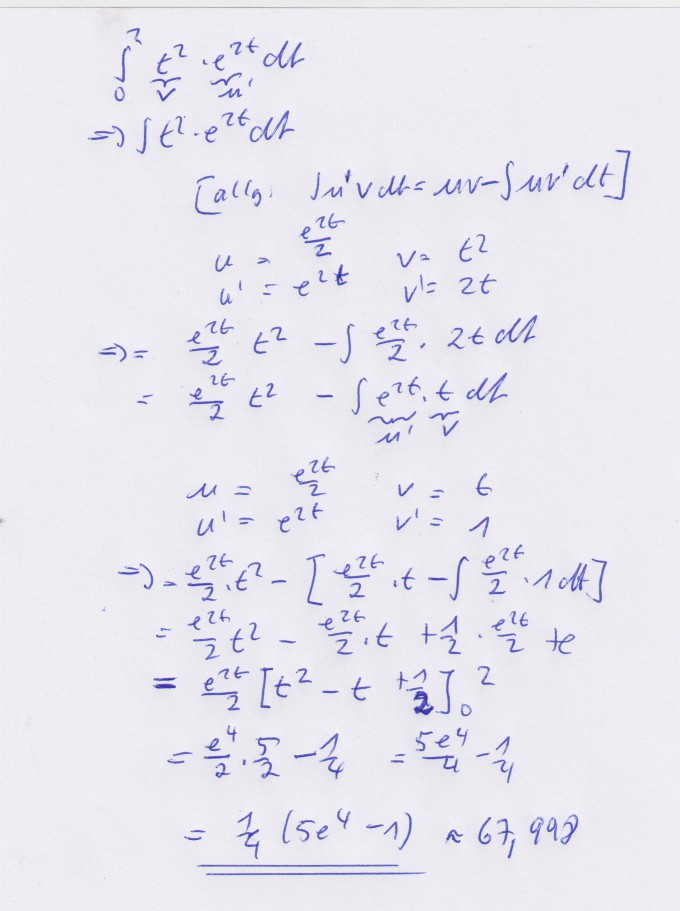 ∫₀² t² · e^{2t} dt
v u'
=> ∫ t² · e^{2t} dt
[allg. ∫ u' v dt = uv - ∫ uv' dt]
u = e^{2t}/2 v = t²
u' = e^{2t} v' = 2t
=> = e^{2t}/2 t² - ∫ e^{2t}/2 · 2t dt
= e^{2t}/2 t² - ∫ e^{2t} · t dt
u' v
u = e^{2t}/2 v = t
u' = e^{2t} v' = 1
=> = e^{2t}/2 · t² - [e^{2t}/2 · t - ∫ e^{2t}/2 · 1 dt]
= e^{2t}/2 t² - e^{2t}/2 · t + 1/2 · e^{2t}/2 + c
= e^{2t}/2 [t² - t + 1/2]₀²
= e⁴/2 · 5/2 - 1/4 = 5e⁴/4 - 1/4
= 1/4 (5e⁴ - 1) ≈ 67,998